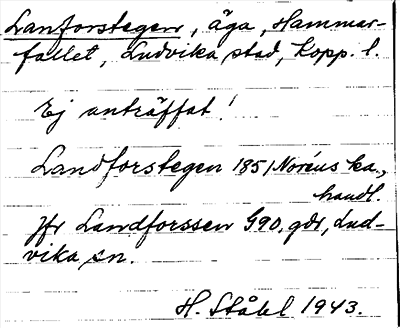 Lanforstegen, äga, Hammar-
fallet, Ludvika stad, Kopp. l.
Ej anträffat!
Landforstegen 1851 Noréus ka.,
handl.
Jfr Landforssen G90, gdr, Lud-
vika sn.
H. Ståhl 1943.